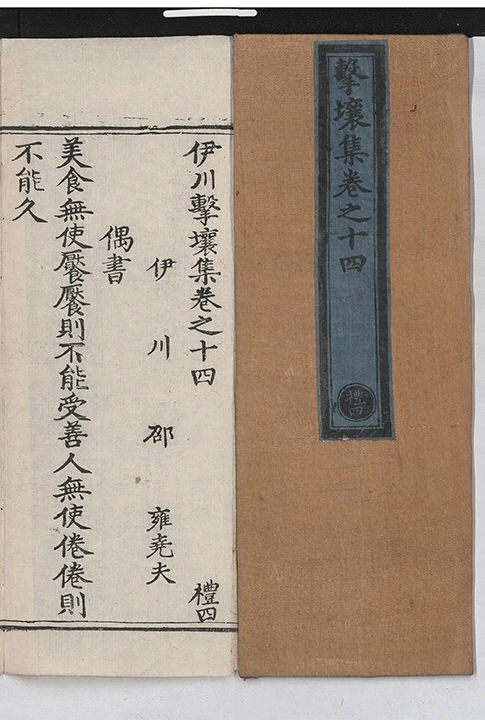 擊壤集卷之十四
禮四
伊川擊壤集卷之十四 禮四
伊川邵雍堯夫
偶書
美食無使饜饜則不能受善人無使倦倦則
不能久